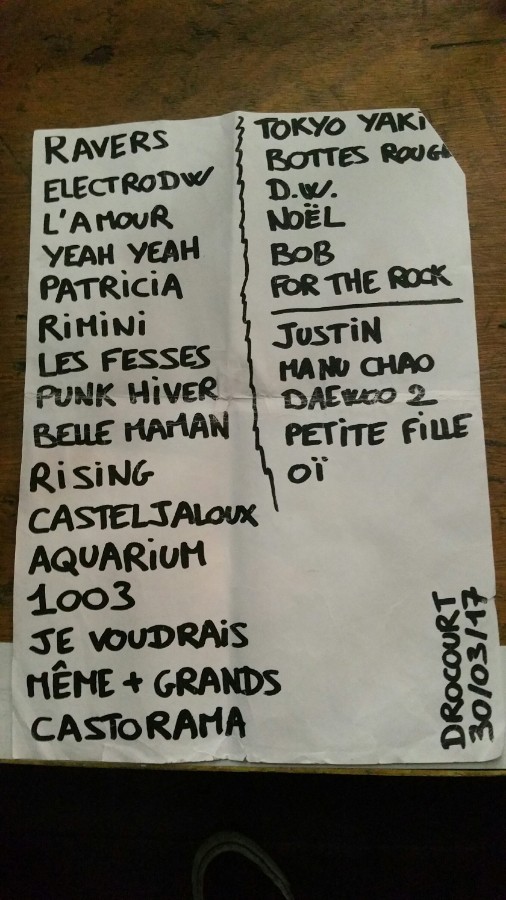 RAVERS
ELECTRODW
L'AMOUR
YEAH YEAH
PATRICIA
RIMINI
LES FESSES
PUNK HIVER
BELLE MAMAN
RISING
CASTELJALOUX
AQUARIUM
1003
JE VOUDRAIS
MÊME + GRANDS
CASTORAMA
TOKYO YAKI
BOTTES ROUGE
D.W.
NOËL
BOB
FOR THE ROCK
JUSTIN
MANU CHAO
DAEWOO 2
PETITE FILLE
OÏ
DROCOURT
30/03/17